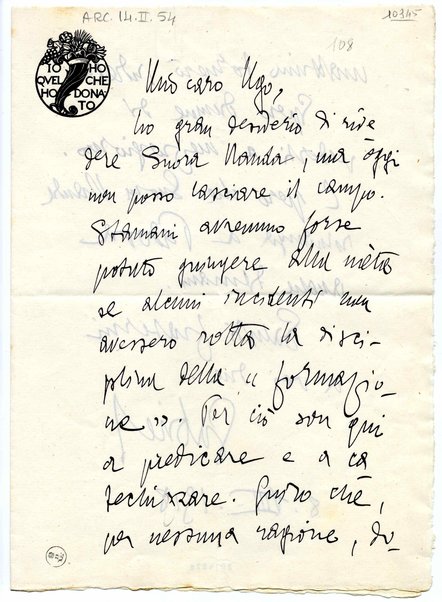 ARC. 14. II. 54
10345
108
IO HO
QVEL CHE
HO DONA
TO
Mio caro Ugo,
ho gran desiderio di rive
dere Suora Nanda, ma oggi
non posso lasciare il campo.
Stamani avremmo forse
potuto giungere alla mèta
se alcuni incidenti non
avessero rotta la disci-
plina della « formazio-
ne ». Per ciò son qui
a predicare e a ca
techizzare. che,
per nessuna ragione, do-